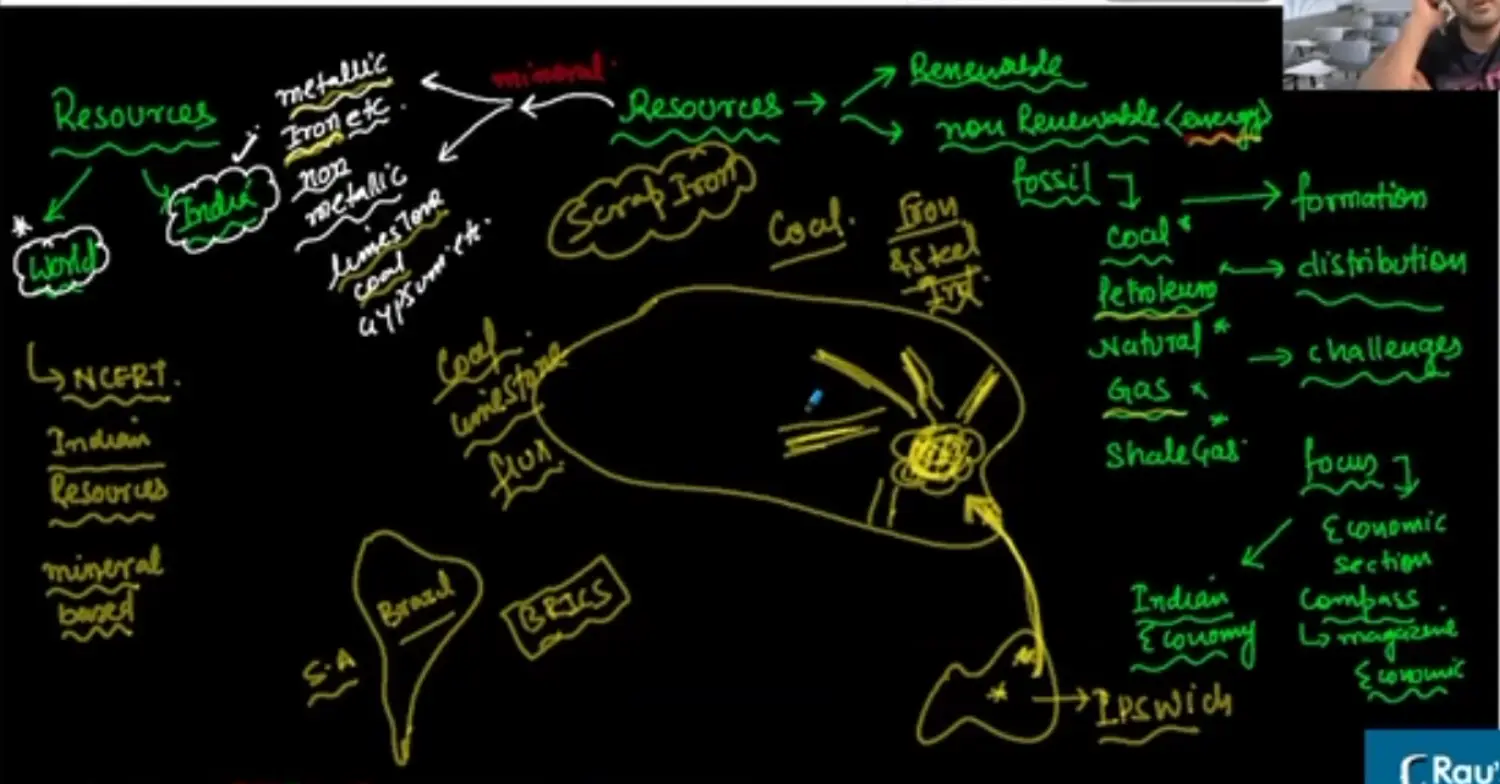 Resources
World
India
metallic
Iron etc.
non
metallic
limestone
coal
Gypsum etc.
mineral.
Resources →
Renewable
non Renewable <energy>
fossil
Coal
Petroleum
Natural
Gas
Shale Gas
formation
distribution
challenges
Scrap Iron
Coal.
Iron
& Steel
Ind.
Coal
Limestone
flux.
NCERT.
Indian
Resources
mineral
based
Brazil
S.A
BRICS
IPSWich
focus
Economic
section
Indian
Economy
Compass
magazine
Economic
Rau'